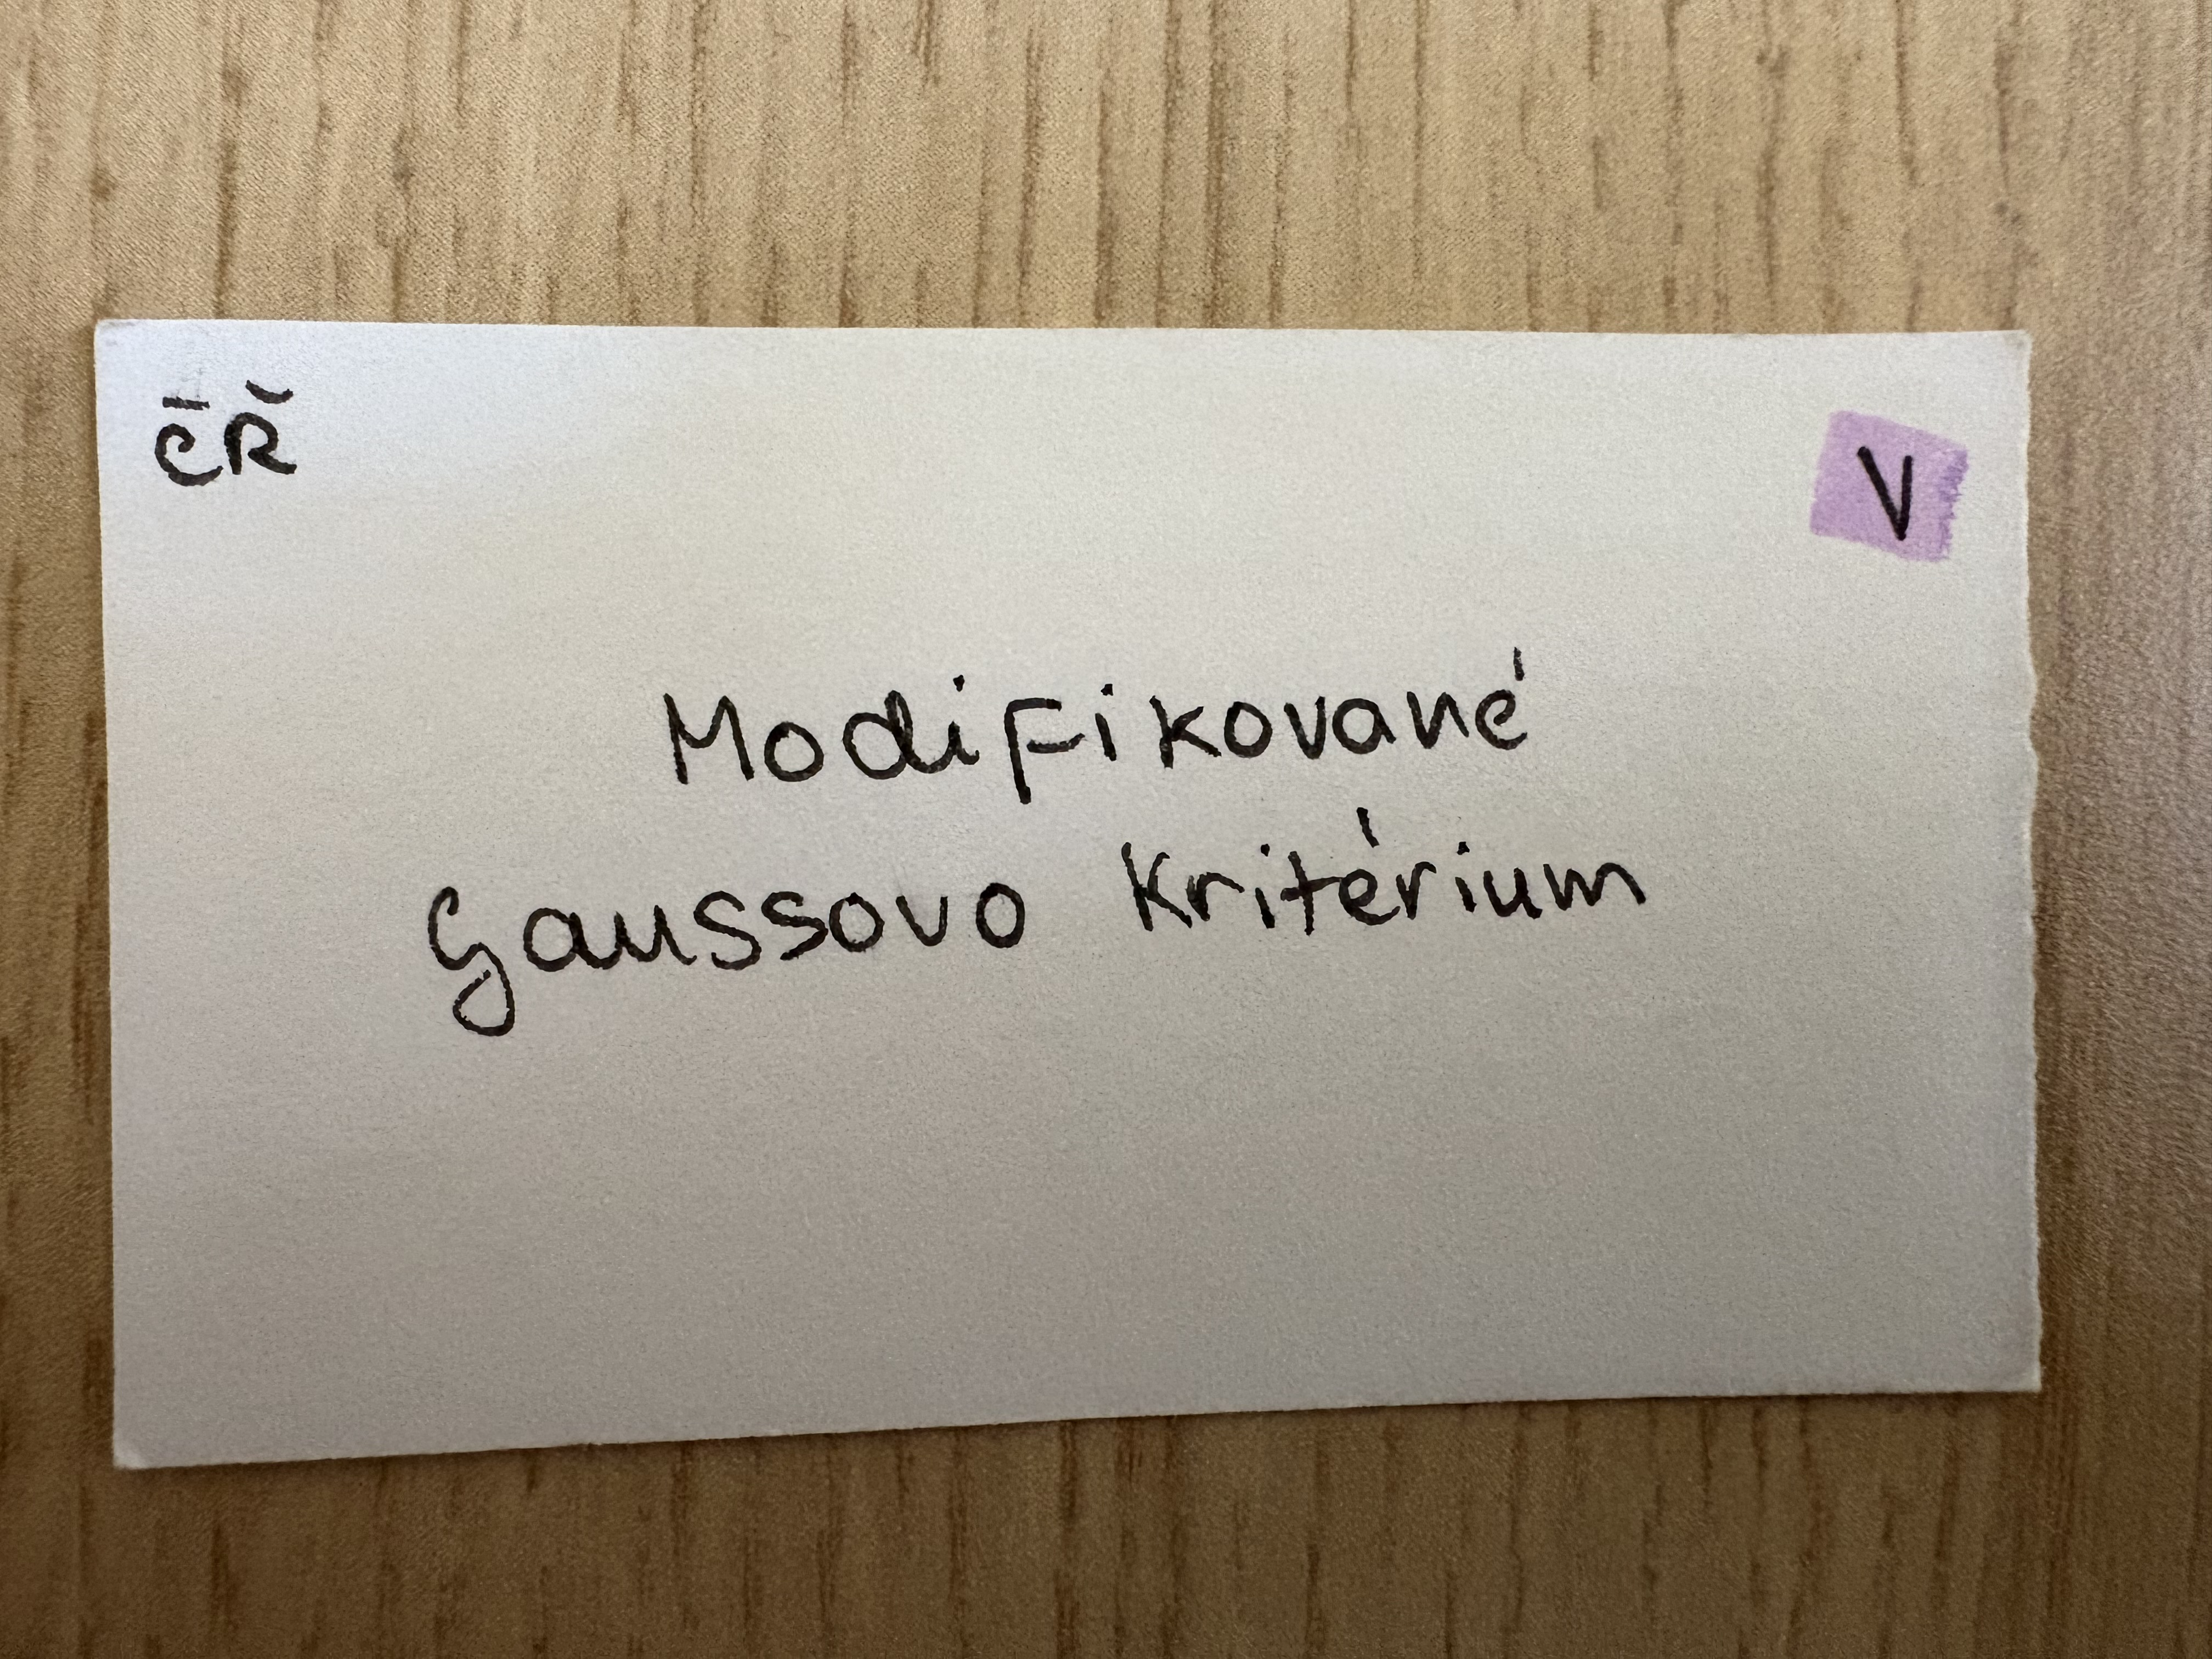 ČŘ
V
Modifikované
Gaussovo kritérium